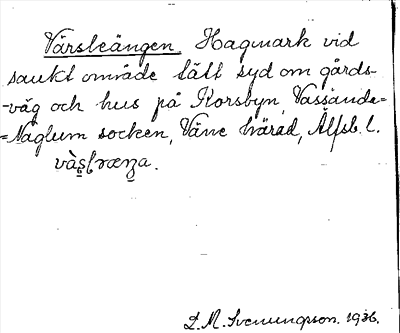 Värsleängen. Hagmark vid
sankt område tätt syd om gårds-
-väg och hus på Korsbyn, Vassända-
=Naglum socken, Väne härad, Älfsb. l.
D. M. Svenungsson. 1936.